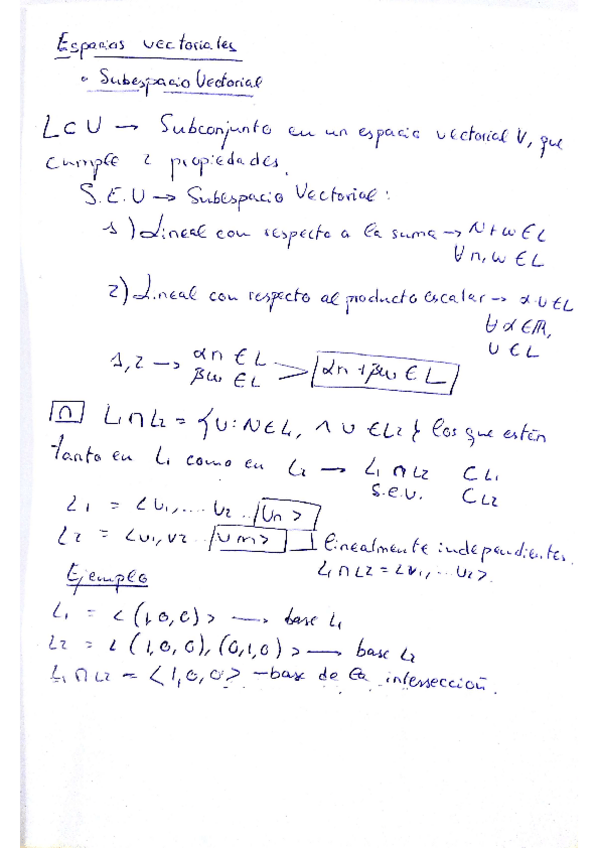 Espacios vectoriales
• Subespacio Vectorial
L ⊂ U → Subconjunto en un espacio vectorial V, que
cumple 2 propiedades.
S.E.U → Subespacio Vectorial:
1) Lineal con respecto a la suma → N + w ∈ L
∀ n, w ∈ L
2) Lineal con respecto al producto escalar → α · U ∈ L
∀ α ∈ ℝ,
U ∈ L
1, 2 → αn ∈ L
βw ∈ L
αn + βw ∈ L
∩ L ∩ L2 = {U : N ∈ L, ∧ U ∈ L2} los que estén
tanto en L1 como en L2 → L1 ∩ L2 ⊂ L1
S.e.v. ⊂ L2
L1 = < U1, ... U2 .. / Un >
L2 = < U1, V2 .. / Um > linealmente independientes.
L1 ∩ L2 = < V1, ... U2 >.
Ejemplo
L1 = < (1, 0, 0) > → base L1
L2 = < (1, 0, 0), (0, 1, 0) > → base L2
L1 ∩ L2 = < 1, 0, 0 > – base de la intersección.